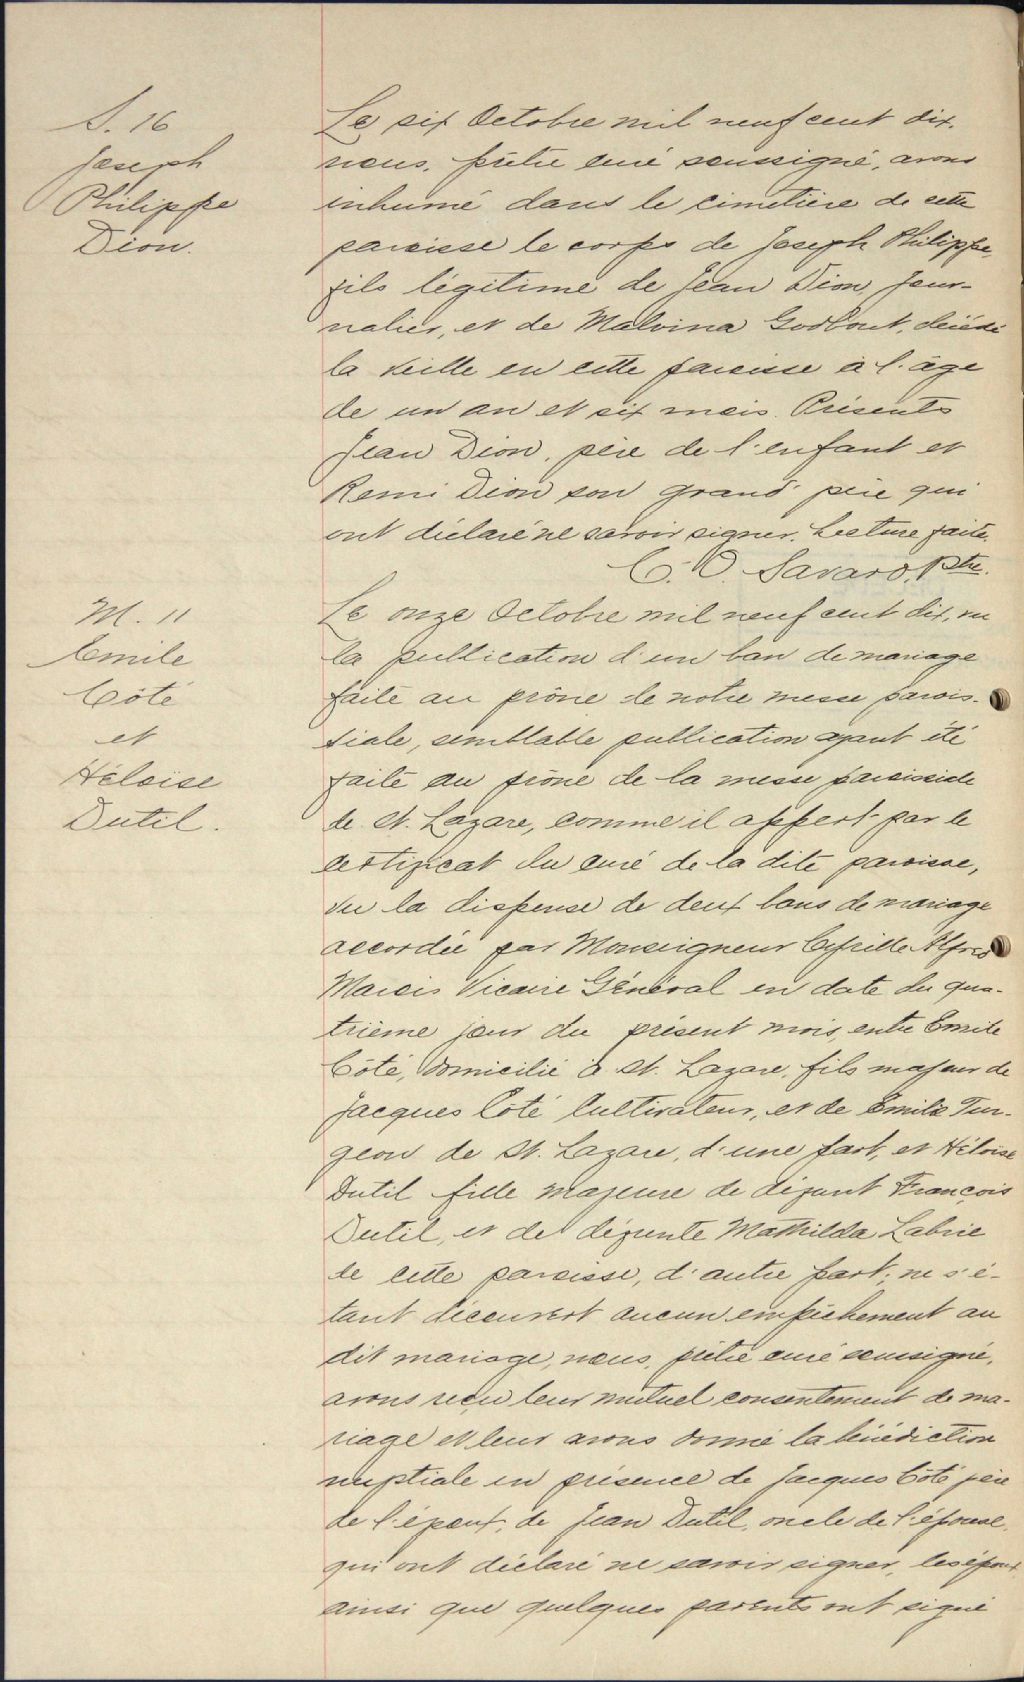 S. 16
Joseph
Philippe
Dion.
Le six Octobre mil neuf cent dix,
nous, prêtre curé soussigné, avons
inhumé dans le cimetière de cette
paroisse le corps de Joseph Philippe,
fils légitime de Jean Dion, jour-
nalier, et de Malvina Godbout, décédé
la veille en cette paroisse à l'âge
de un an et six mois. Présents
Jean Dion, père de l'enfant et
Remi Dion son grand père qui
ont déclaré ne savoir signer. Lecture faite.
C. O. Savard, Ptre.
M. 11
Emile
Côté
et
Héloïse
Dutil.
Le onze Octobre mil neuf cent dix, vu
la publication d'un ban de mariage
faite au prône de notre messe parois-
siale, semblable publication ayant été
faite au prône de la messe paroissiale
de St. Lazare, comme il appert par le
certificat du curé de la dite paroisse,
vu la dispense de deux bans de mariage
accordée par Monseigneur Cyrille Alfred
Marois Vicaire Général en date du qua-
trième jour du présent mois, entre Emile
Côté, domicilié à St. Lazare, fils majeur de
Jacques Côté Cultivateur, et de Emilie Tur-
geon de St. Lazare, d'une part, et Héloïse
Dutil fille majeure de défunt François
Dutil, et de défunte Mathilda Labrie
de cette paroisse, d'autre part; ne s'é-
tant découvert aucun empêchement au
dit mariage, nous, prêtre curé soussigné,
avons reçu leur mutuel consentement de ma-
riage et leur avons donné la bénédiction
nuptiale en présence de Jacques Côté père
de l'époux, de Jean Dutil, oncle de l'épouse,
qui ont déclaré ne savoir signer, les époux
ainsi que quelques parents ont signé